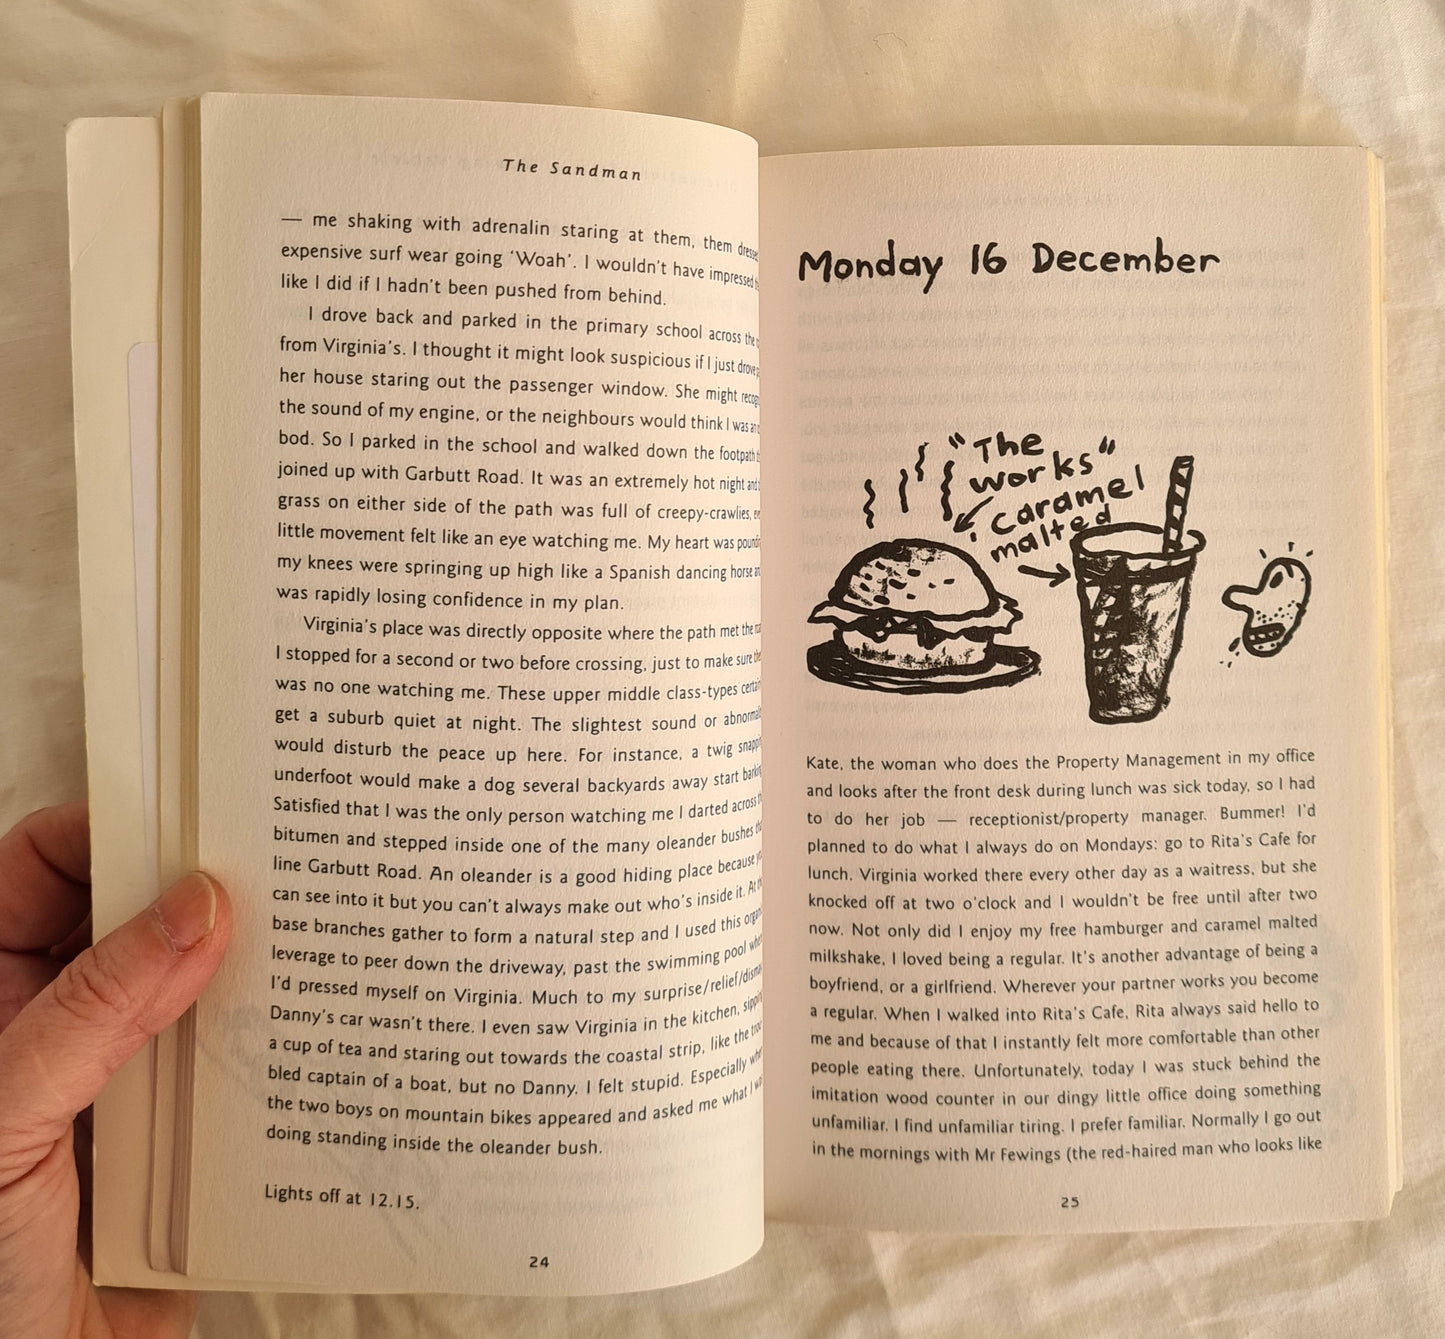 The Sandman
— me shaking with adrenalin staring at them, them
expensive surf wear going ‘Woah’. I wouldn’t have impressed
like I did if I hadn’t been pushed from behind.
I drove back and parked in the primary school across the
from Virginia’s. I thought it might look suspicious if I just drove
her house staring out the passenger window. She might
the sound of my engine, or the neighbours would think I was
bod. So I parked in the school and walked down the footpath
joined up with Garbutt Road. It was an extremely hot night and
grass on either side of the path was full of creepy-crawlies,
little movement felt like an eye watching me. My heart was
my knees were springing up high like a Spanish dancing horse
was rapidly losing confidence in my plan.
Virginia’s place was directly opposite where the path met the
I stopped for a second or two before crossing, just to make sure
was no one watching me. These upper middle class-types
get a suburb quiet at night. The slightest sound or
would disturb the peace up here. For instance, a twig
underfoot would make a dog several backyards away start
Satisfied that I was the only person watching me I darted across
bitumen and stepped inside one of the many oleander bushes
line Garbutt Road. An oleander is a good hiding place because
can see into it but you can’t always make out who’s inside it. At
base branches gather to form a natural step and I used this
leverage to peer down the driveway, past the swimming pool
I’d pressed myself on Virginia. Much to my surprise/relief/
Danny’s car wasn’t there. I even saw Virginia in the kitchen,
a cup of tea and staring out towards the coastal strip, like the
bled captain of a boat, but no Danny. I felt stupid. Especially
the two boys on mountain bikes appeared and asked me what I
doing standing inside the oleander bush.
Lights off at 12.15.
24
Monday 16 December
“The
works”
caramel
malted
Kate, the woman who does the Property Management in my office
and looks after the front desk during lunch was sick today, so I had
to do her job — receptionist/property manager. Bummer! I’d
planned to do what I always do on Mondays: go to Rita’s Cafe for
lunch. Virginia worked there every other day as a waitress, but she
knocked off at two o’clock and I wouldn’t be free until after two
now. Not only did I enjoy my free hamburger and caramel malted
milkshake, I loved being a regular. It’s another advantage of being a
boyfriend, or a girlfriend. Wherever your partner works you become
a regular. When I walked into Rita’s Cafe, Rita always said hello to
me and because of that I instantly felt more comfortable than other
people eating there. Unfortunately, today I was stuck behind the
imitation wood counter in our dingy little office doing something
unfamiliar. I find unfamiliar tiring. I prefer familiar. Normally I go out
in the mornings with Mr Fewings (the red-haired man who looks like
25